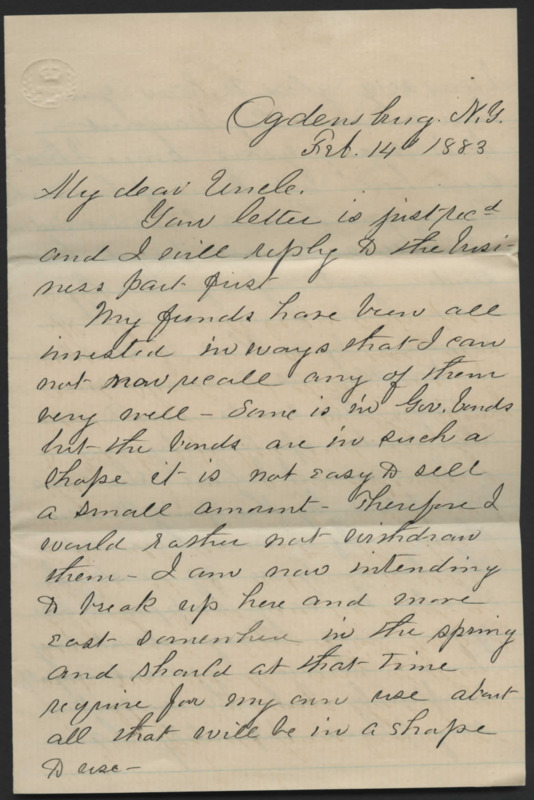 Ogdensburg. N.Y.
Feb. 14th 1883
My dear Uncle.
Your letter is just rec'd
and I will reply to the busi-
ness part first
My funds have been all
invested in ways that I can
not now recall any of them
very well - Some is in Gov. bonds
but the bonds are in such a
shape it is not easy to sell
a small amount - Therefore I
would rather not withdraw
them - I am now intending
to break up here and move
east somewhere in the spring
and should at that time
require for my own use about
all that will be in a shape
to use -